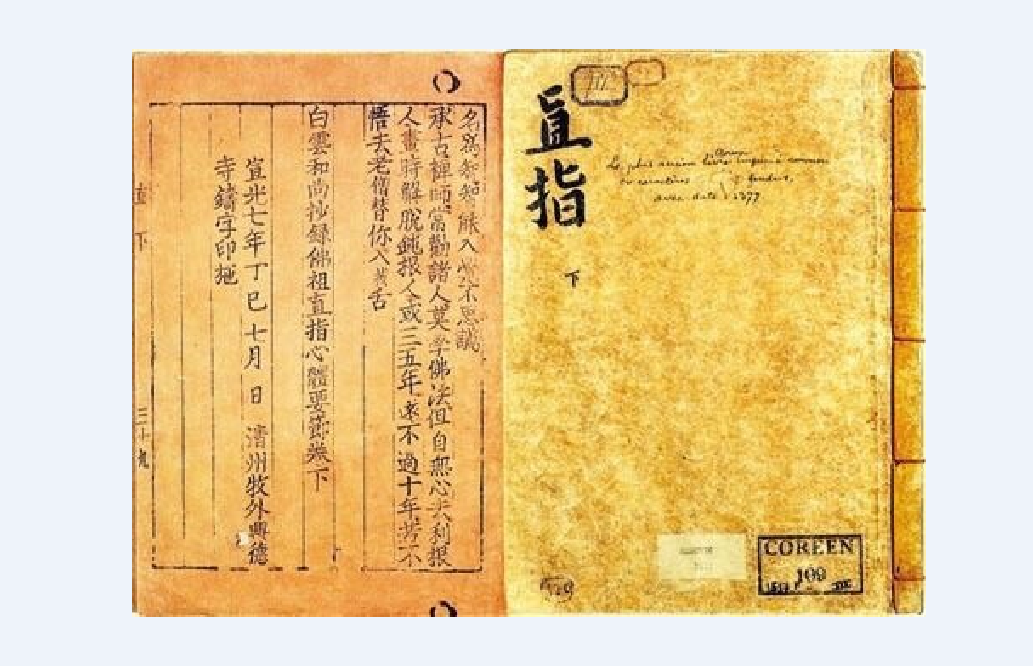 直指
下
Le plus ancien livre imprimé connu
en caractères fondus,
avec date 1377
COREEN
109
名爲 能入 不思議
承古禪師常勸諸人莫學佛法但自無心去利根
人畫時解脫鈍根人或三五年遠不過十年若不
悟去老僧替你入 舌
白雲和尚抄録佛祖直指心體要節卷下
宣光七年丁巳七月 日 清州牧外興德
寺鑄字印施
直 下 三十九